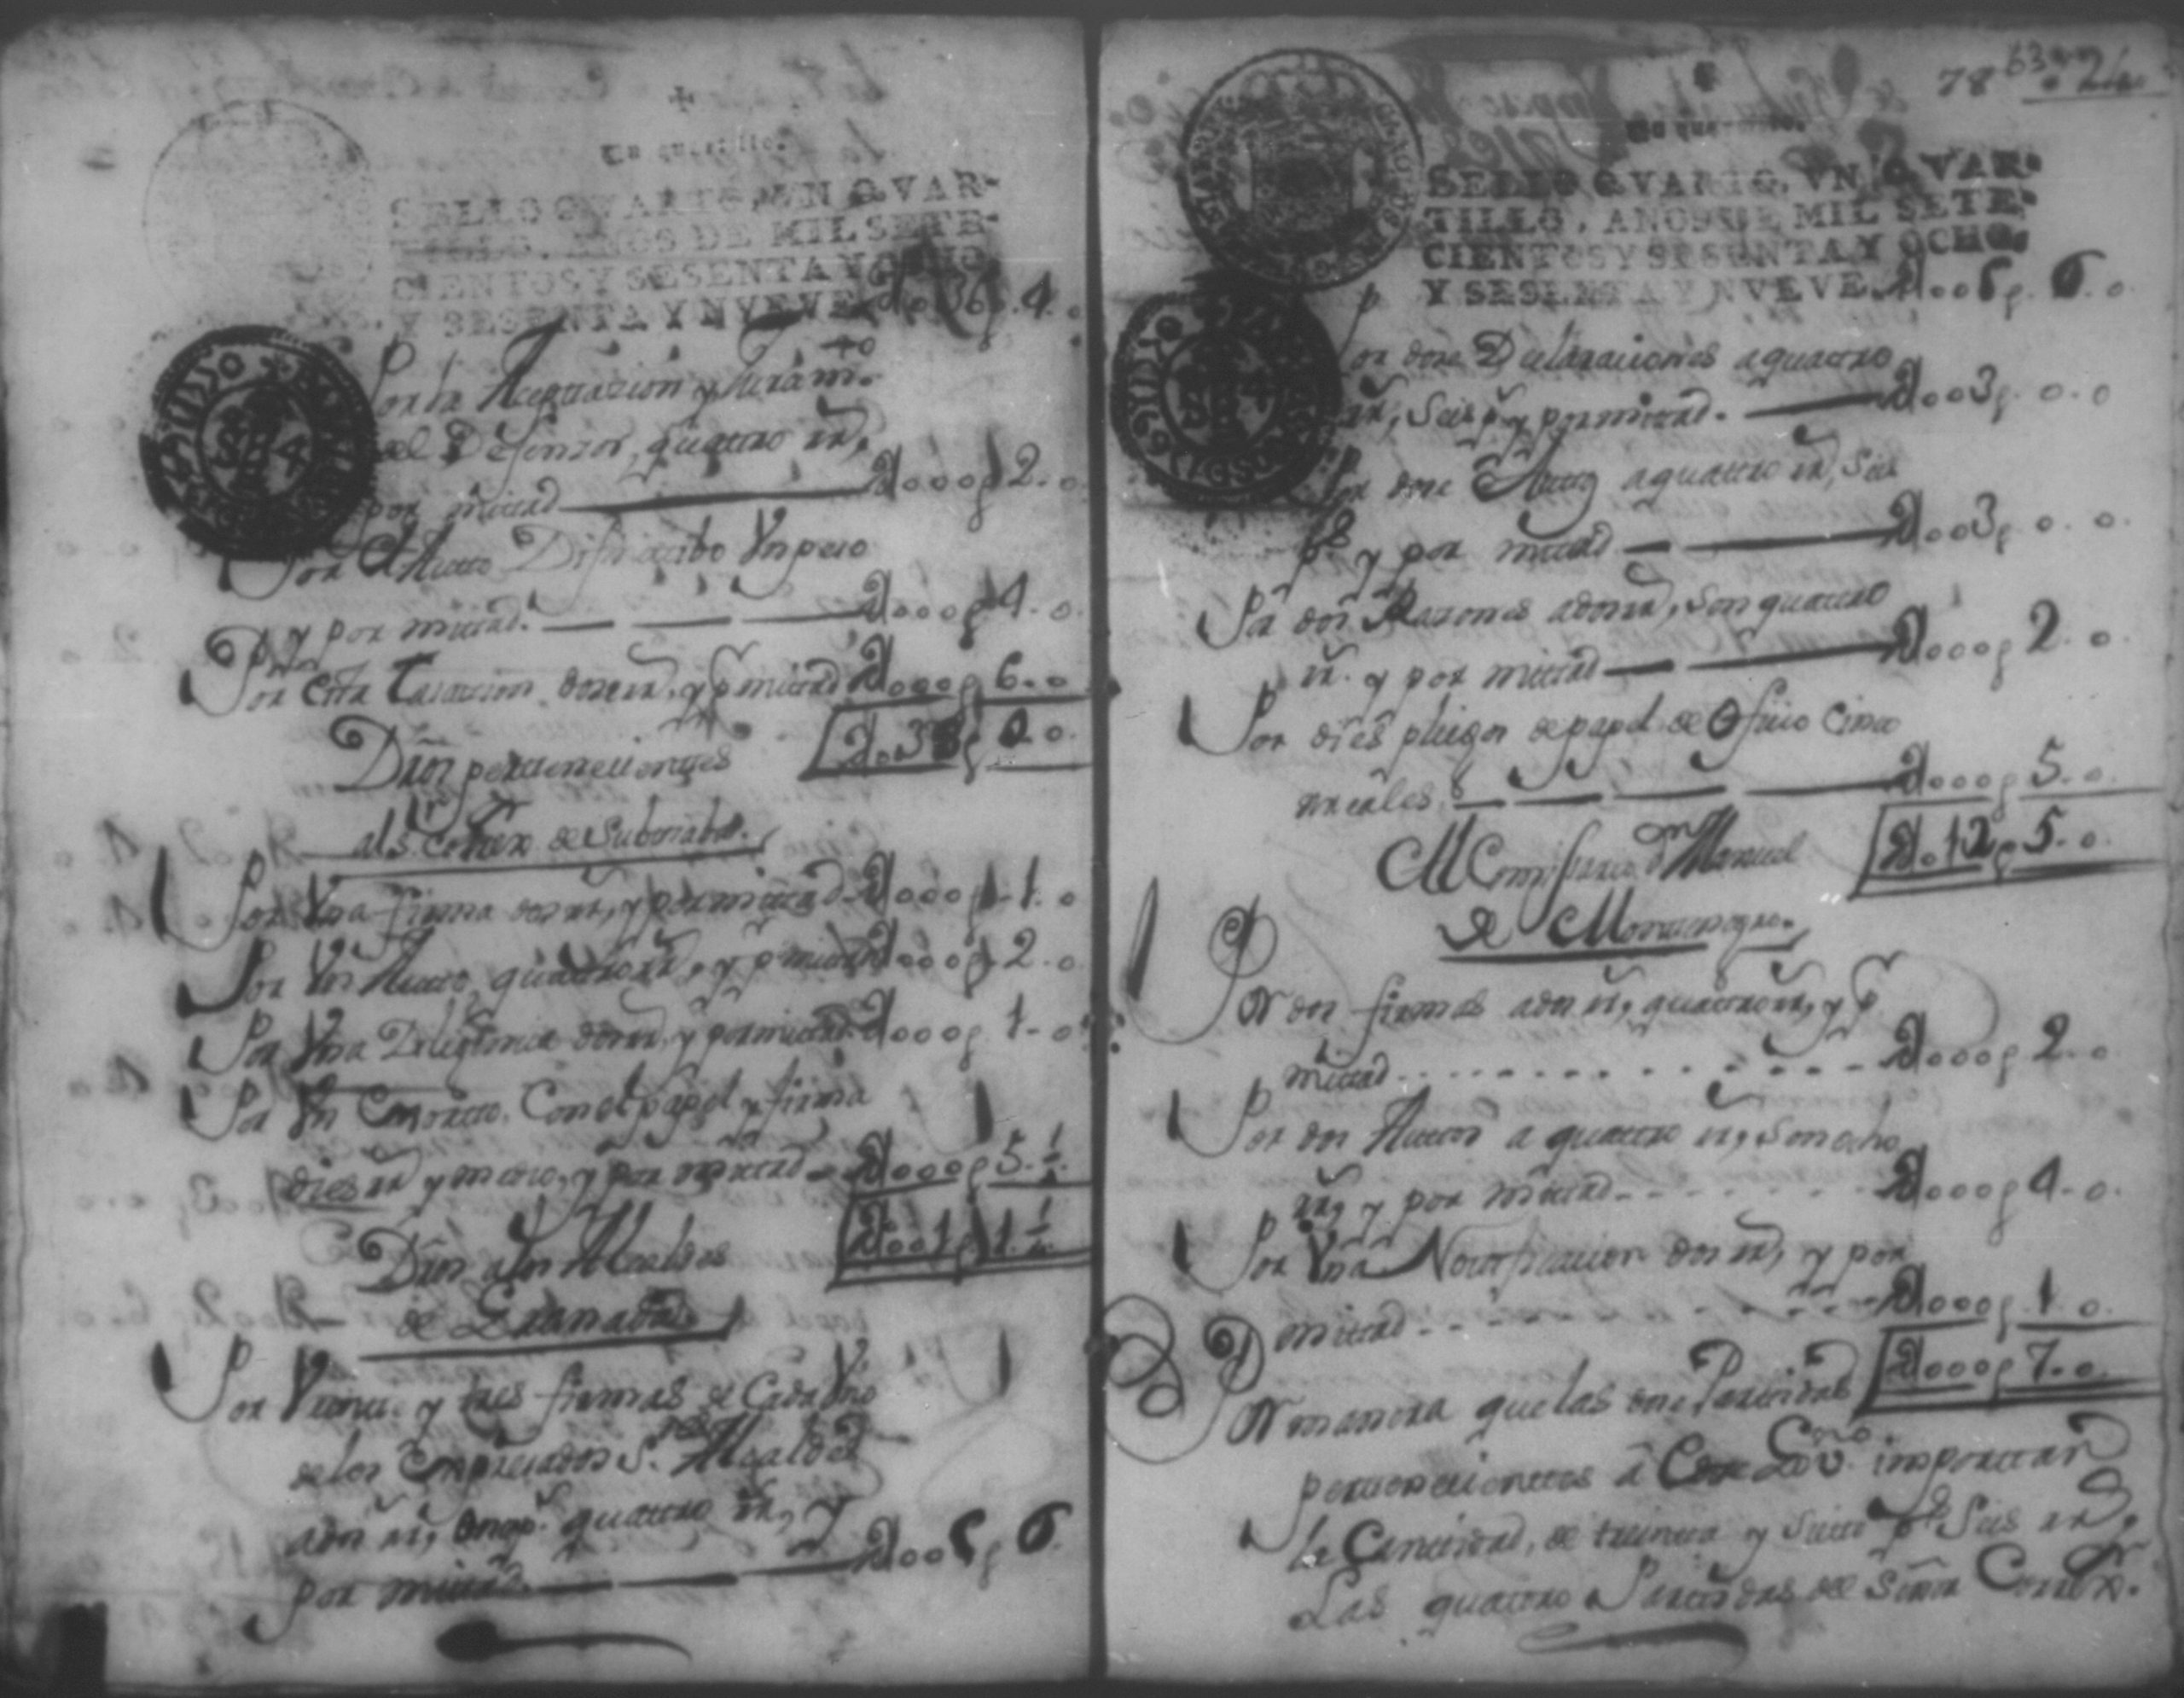 ✝
Un quartillo.
SELLO QVARTO, VN QVAR-
TILLO, AÑOS DE MIL SETE-
CIENTOS Y SESENTA Y OCHO,
Y SESENTA Y NVEVE. 4.
Por la Aceptacion y Juram.to
del Defensor, quattro rr.s
por mittad 2..o
Por Autto Difinitibo Un peso
y por mittad. 4..o
Por esta tasacion dose rr.s y p.r mittad 6..o
Dros pertenecientes
al S.r Corr.or de Subtiaba.
Por Una firma dos rr.s, y por mittad 1..o
Por Un Autto quattro rr.s, y p.r mittad 2..o
Por Una Diligencia dos rr.s y por mittad 1..o
Por Un Exortto Con el papel y firma
dies rr.s y medio, y por mittad 5.½.
Dros a los Alcaldes
de Granada
Por Veinte y tres firmas de Cada Uno
de los Expresados S.res Alcaldes
a dos rr.s, quattro rr.s, y
por mittad 6.
78
Un quartillo.
SELLO QVARTO, VN QVAR-
TILLO, AÑOS DE MIL SETE-
CIENTOS Y SESENTA Y OCHO,
Y SESENTA Y NVEVE. 6..o
Por dose Declaraciones a quattro
rr.s, Seis p.s y por mittad. 3p. o..o
Por dose Auttos a quattro rr.s, Seis
p.s y por mittad 3p. o..o
Por dos Razones a dos rr.s, son quattro
rr.s y por mittad 2..o
Por dies pliegos de papel de Oficio Cinco
reales 5..o
12p. 5..o
Al Comissario d.n Manuel
de Montenegro.
Por dos firmas a dos rr.s, quattro rr.s, y p.r
mittad 2..o
Por dos Auttos a quattro rr.s, son ocho
rr.s, y por mittad 4..o
Por Una Notificacion dos rr.s, y por
mittad 1..o
7..o
Por manera que las dose Partidas
pertenecientes â importan
la Canttidad, de treinta y Siette p.s Seis rr.s,
Las quattro Partidas del Señor Corr.or